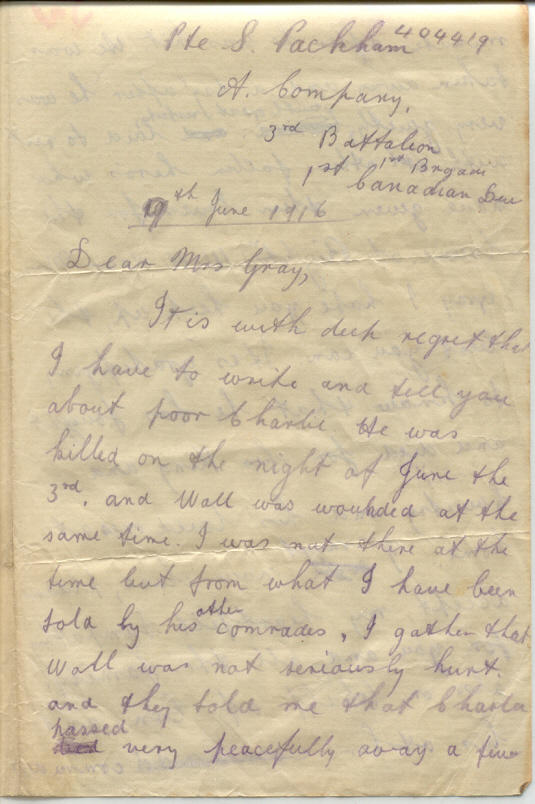 Pte S. Packham 404419
A. Company,
3rd Battalion
1st Brigade
1st Canadian Div
9th June 1916
Dear Mrs Gray,
It is with deep regret that
I have to write and tell you
about poor Charlie He was
killed on the night of June the
3rd. and Wall was wounded at the
same time. I was not there at the
time but from what I have been
told by his other comrades, I gather that
Wall was not seriously hurt.
and they told me that Charlie
passed very peacefully away a few